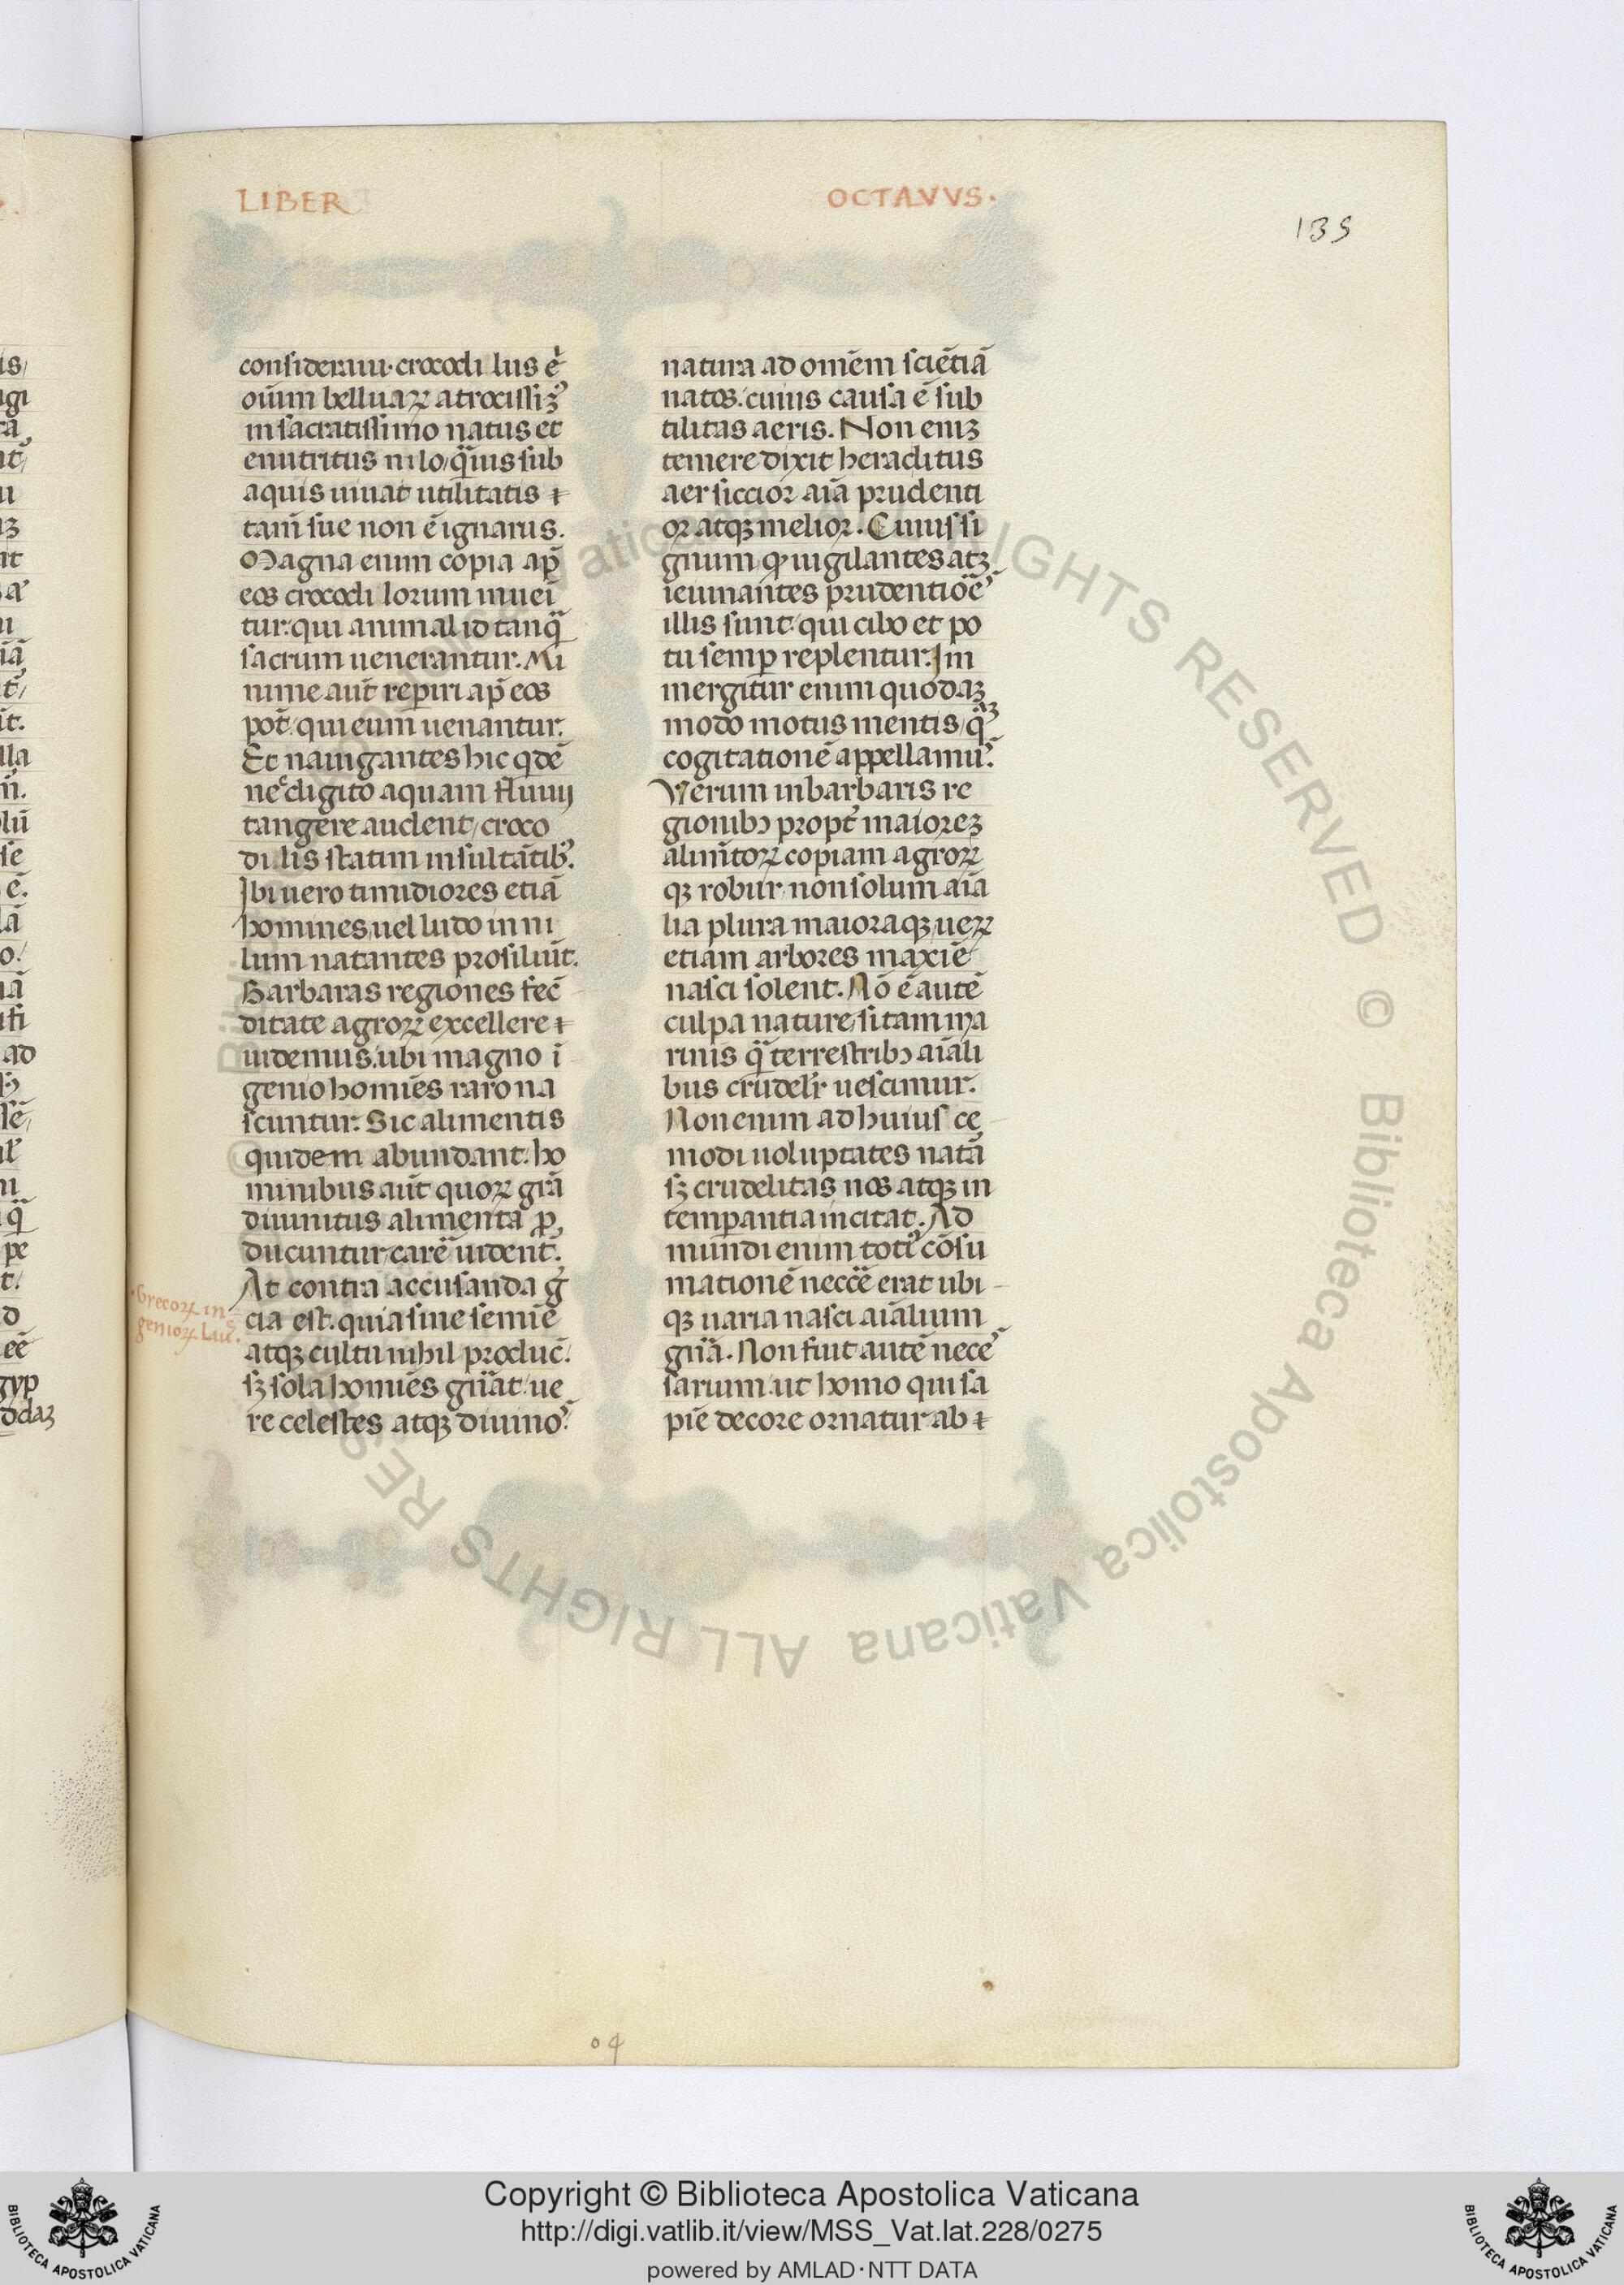 LIBER
OCTAVVS.
139
consideraui. crocodi lus ē
oūm belluaꝝ atrocissiꝫ᷒
in sacratissimo natus et
enutritus nilo/ qͣuis sub
aquis uiuat utilitatis ⁊
tam̄ sue non ē ignarus.
Magna enim copia ap̄
eos crocodi lorum inuei
tur: qui animal id tanqͣ
sacrum uenerantur. Mi
nime aūt reperiri ap̄ eos
pot̄/ qui eum uenantur.
Et nauigantes hic qdē
nec digito aquam fluuij
tangere audent/ croco
di lis statim insultātibꝰ.
Ibi uero timidiores etiā
homines uel ludo in ni
lum natantes prosiluūt.
Barbaras regiones fec̄
ditate agroꝝ excellere ⁊
uidemus. ubi magno ī
genio homīes raro na
scuntur. Sic alimentis
quidem abundant. ho
minibus aūt quoꝝ grā
diuinitus alimenta ꝓ
ducuntur carē uident̄.
At contra accusanda g̃
cia est. quia sine semīe
atqꝫ cultu nihil produc̄.
sꝫ sola homīes gn̄at/ ue
re celestes atqꝫ diuinoꝰ.
·Grecoꝝ in
genioꝝ Laus.
natura ad omēm sciētiā
natos. cuius causa ē sub
tilitas aeris. Non enīꝫ
temere dixit heraclitus
aer siccior aīa prudenti
or atqꝫ melior. Cuius si
gnum/ qꝙ uigilantes atqꝫ
ieiunantes prudentiōēs
illis sunt/ qui cibo et po
tu semp̱ replentur. Im
mergitur enim quodaꝫ
modo motus mentis/ qͣꝫ
cogitationē appellamuꝰ.
Verum in barbaris re
gionibꝫ propt̄ maioreꝫ
alimn̄toꝝ copiam agroꝝ
qꝫ robur/ non solum aīa
lia plura maioraqꝫ ueꝝ
etiam arbores maxīē
nasci solent. Nō ē autē
culpa nature/ si tam ma
rinis qͣ terrestribꝫ aīali
bus crudelr̄ uescimur.
Non enim ad huius ce
modi uoluptates natā
sꝫ crudelitas nos atqꝫ in
temp̱antia incitat. Ad
mundi enim totiꝰ cōsu
mationē neccē erat ubi
qꝫ uaria nasci aīalium
gn̄a. Non fuit autē nece
sarium/ ut homo qui sa
piē decore ornatur ab ⁊
Copyright © Biblioteca Apostolica Vaticana
http://digi.vatlib.it/view/MSS_Vat.lat.228/0275
powered by AMLAD·NTT DATA
BIBLIOTECA APOSTOLICA VATICANA
BIBLIOTECA APOSTOLICA VATICANA
© Biblioteca Apostolica Vaticana ALL RIGHTS RESERVED